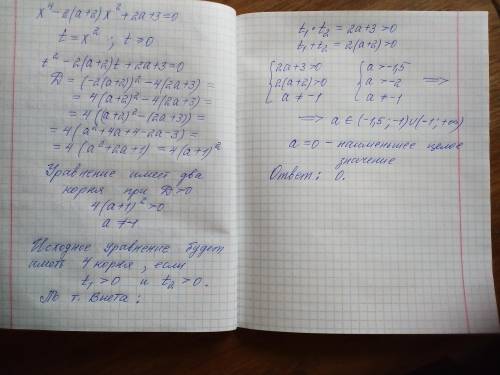 x⁴ - 2(a+2)x² + 2a+3=0
t = x² ; t ≥ 0
t² - 2(a+2)t + 2a+3=0
D = (-2(a+2))² - 4(2a+3) =
= 4(a+2)² - 4(2a+3) =
= 4((a+2)² - (2a+3)) =
= 4(a² + 4a + 4 - 2a - 3) =
= 4(a² + 2a + 1) = 4(a+1)²
Уравнение имеет два
корня при D > 0
4(a+1)² > 0
a ≠ -1
Исходное уравнение будет
иметь 4 корня, если
t₁ > 0 и t₂ > 0.
По т. Виета:
t₁ · t₂ = 2a+3 > 0
t₁ + t₂ = 2(a+2) > 0
{ 2a+3 > 0 { a > -1,5
{ 2(a+2) > 0 { a > -2 ⟹
{ a ≠ -1 { a ≠ -1
⟹ a ∈ (-1,5; -1)∪(-1; +∞)
a = 0 - наименьшее целое
значение
Ответ: 0.